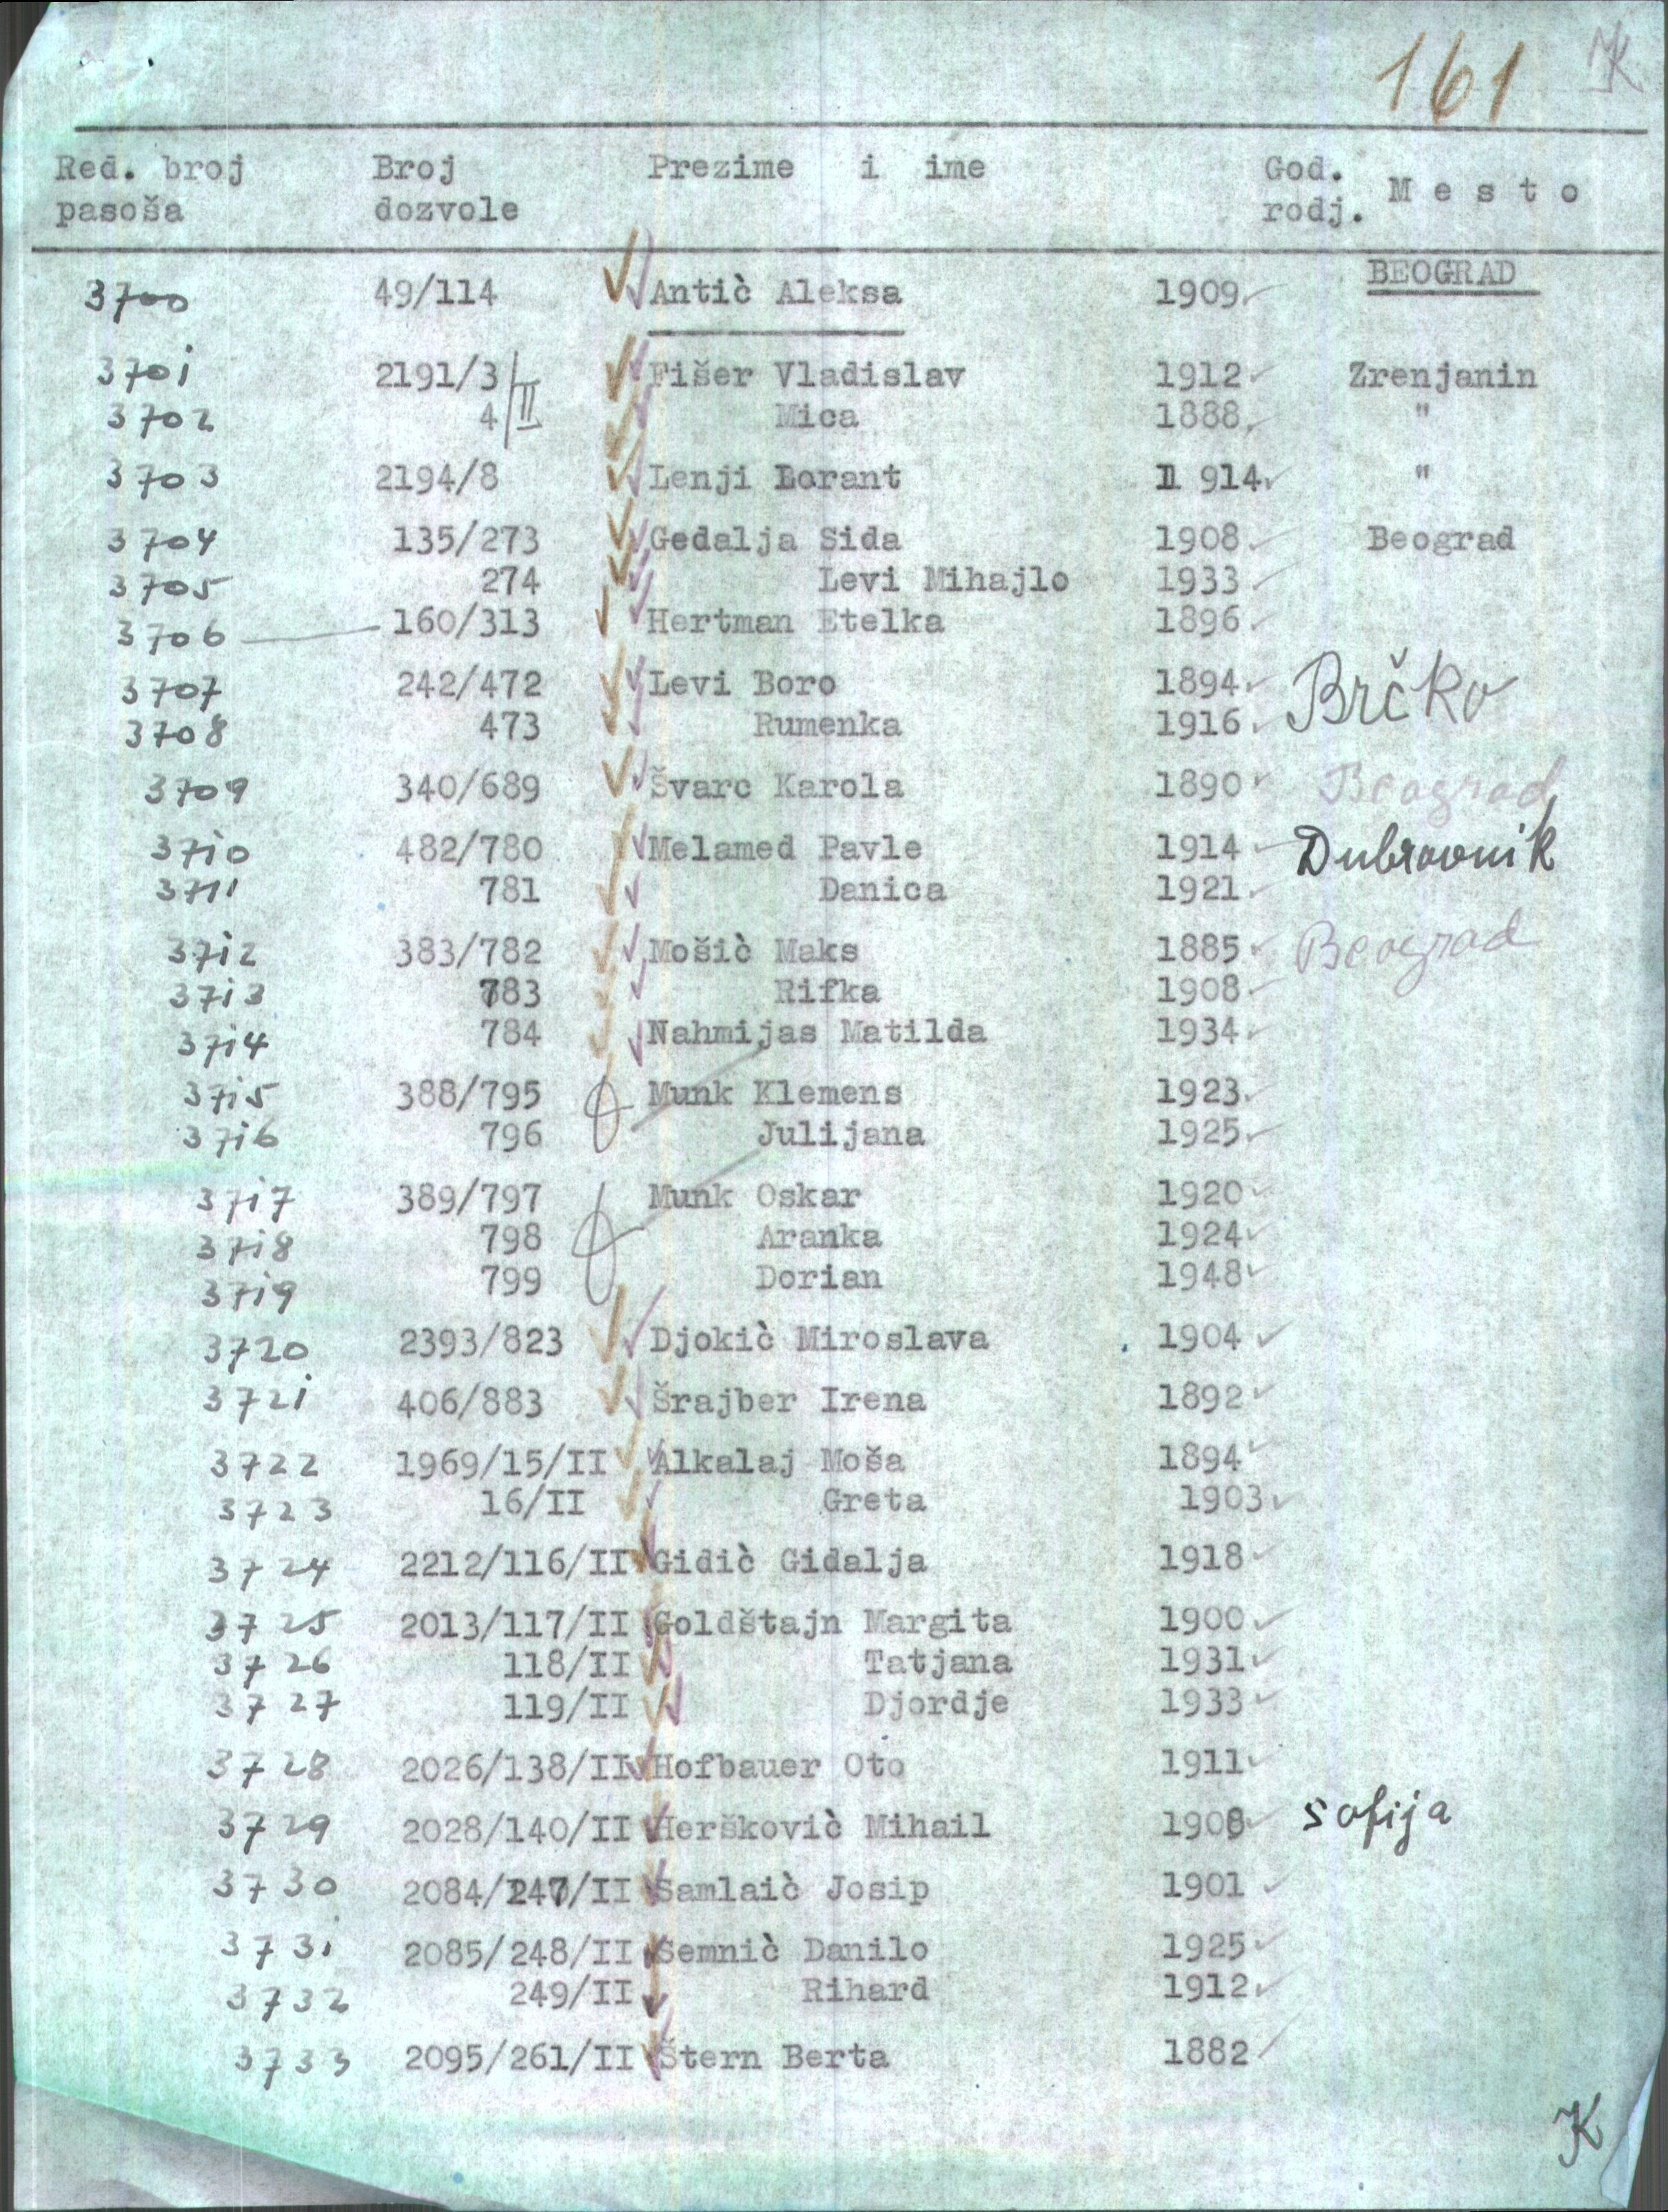 161 K
Red. broj Broj Prezime i ime God. M e s t o
pasoša dozvole rodj.
BEOGRAD
3700 49/114 Antiè Aleksa 1909
3701 2191/3/II Fišer Vladislav 1912 Zrenjanin
3702 4/II Mica 1888 "
3703 2194/8 Lenji Lorant 1 914 "
3704 135/273 Gedalja Sida 1908 Beograd
3705 274 Levi Mihajlo 1933
3706 160/313 Hertman Etelka 1896
3707 242/472 Levi Boro 1894 Brčko
3708 473 Rumenka 1916
3709 340/689 Švarc Karola 1890 Beograd
3710 482/780 Melamed Pavle 1914 Dubrovnik
3711 781 Danica 1921
3712 383/782 Mošiè Maks 1885 Beograd
3713 783 Rifka 1908
3714 784 Nahmijas Matilda 1934
3715 388/795 Munk Klemens 1923
3716 796 Julijana 1925
3717 389/797 Munk Oskar 1920
3718 798 Aranka 1924
3719 799 Dorian 1948
3720 2393/823 Djokiè Miroslava 1904
3721 406/883 Šrajber Irena 1892
3722 1969/15/II Alkalaj Moša 1894
3723 16/II Greta 1903
3724 2212/116/II Gidiè Gidalja 1918
3725 2013/117/II Goldštajn Margita 1900
3726 118/II Tatjana 1931
3727 119/II Djordje 1933
3728 2026/138/II Hofbauer Oto 1911
3729 2028/140/II Herškoviè Mihail 1908 Sofija
3730 2084/247/II Samlaiè Josip 1901
3731 2085/248/II Semniè Danilo 1925
3732 249/II Rihard 1912
3733 2095/261/II Štern Berta 1882
K